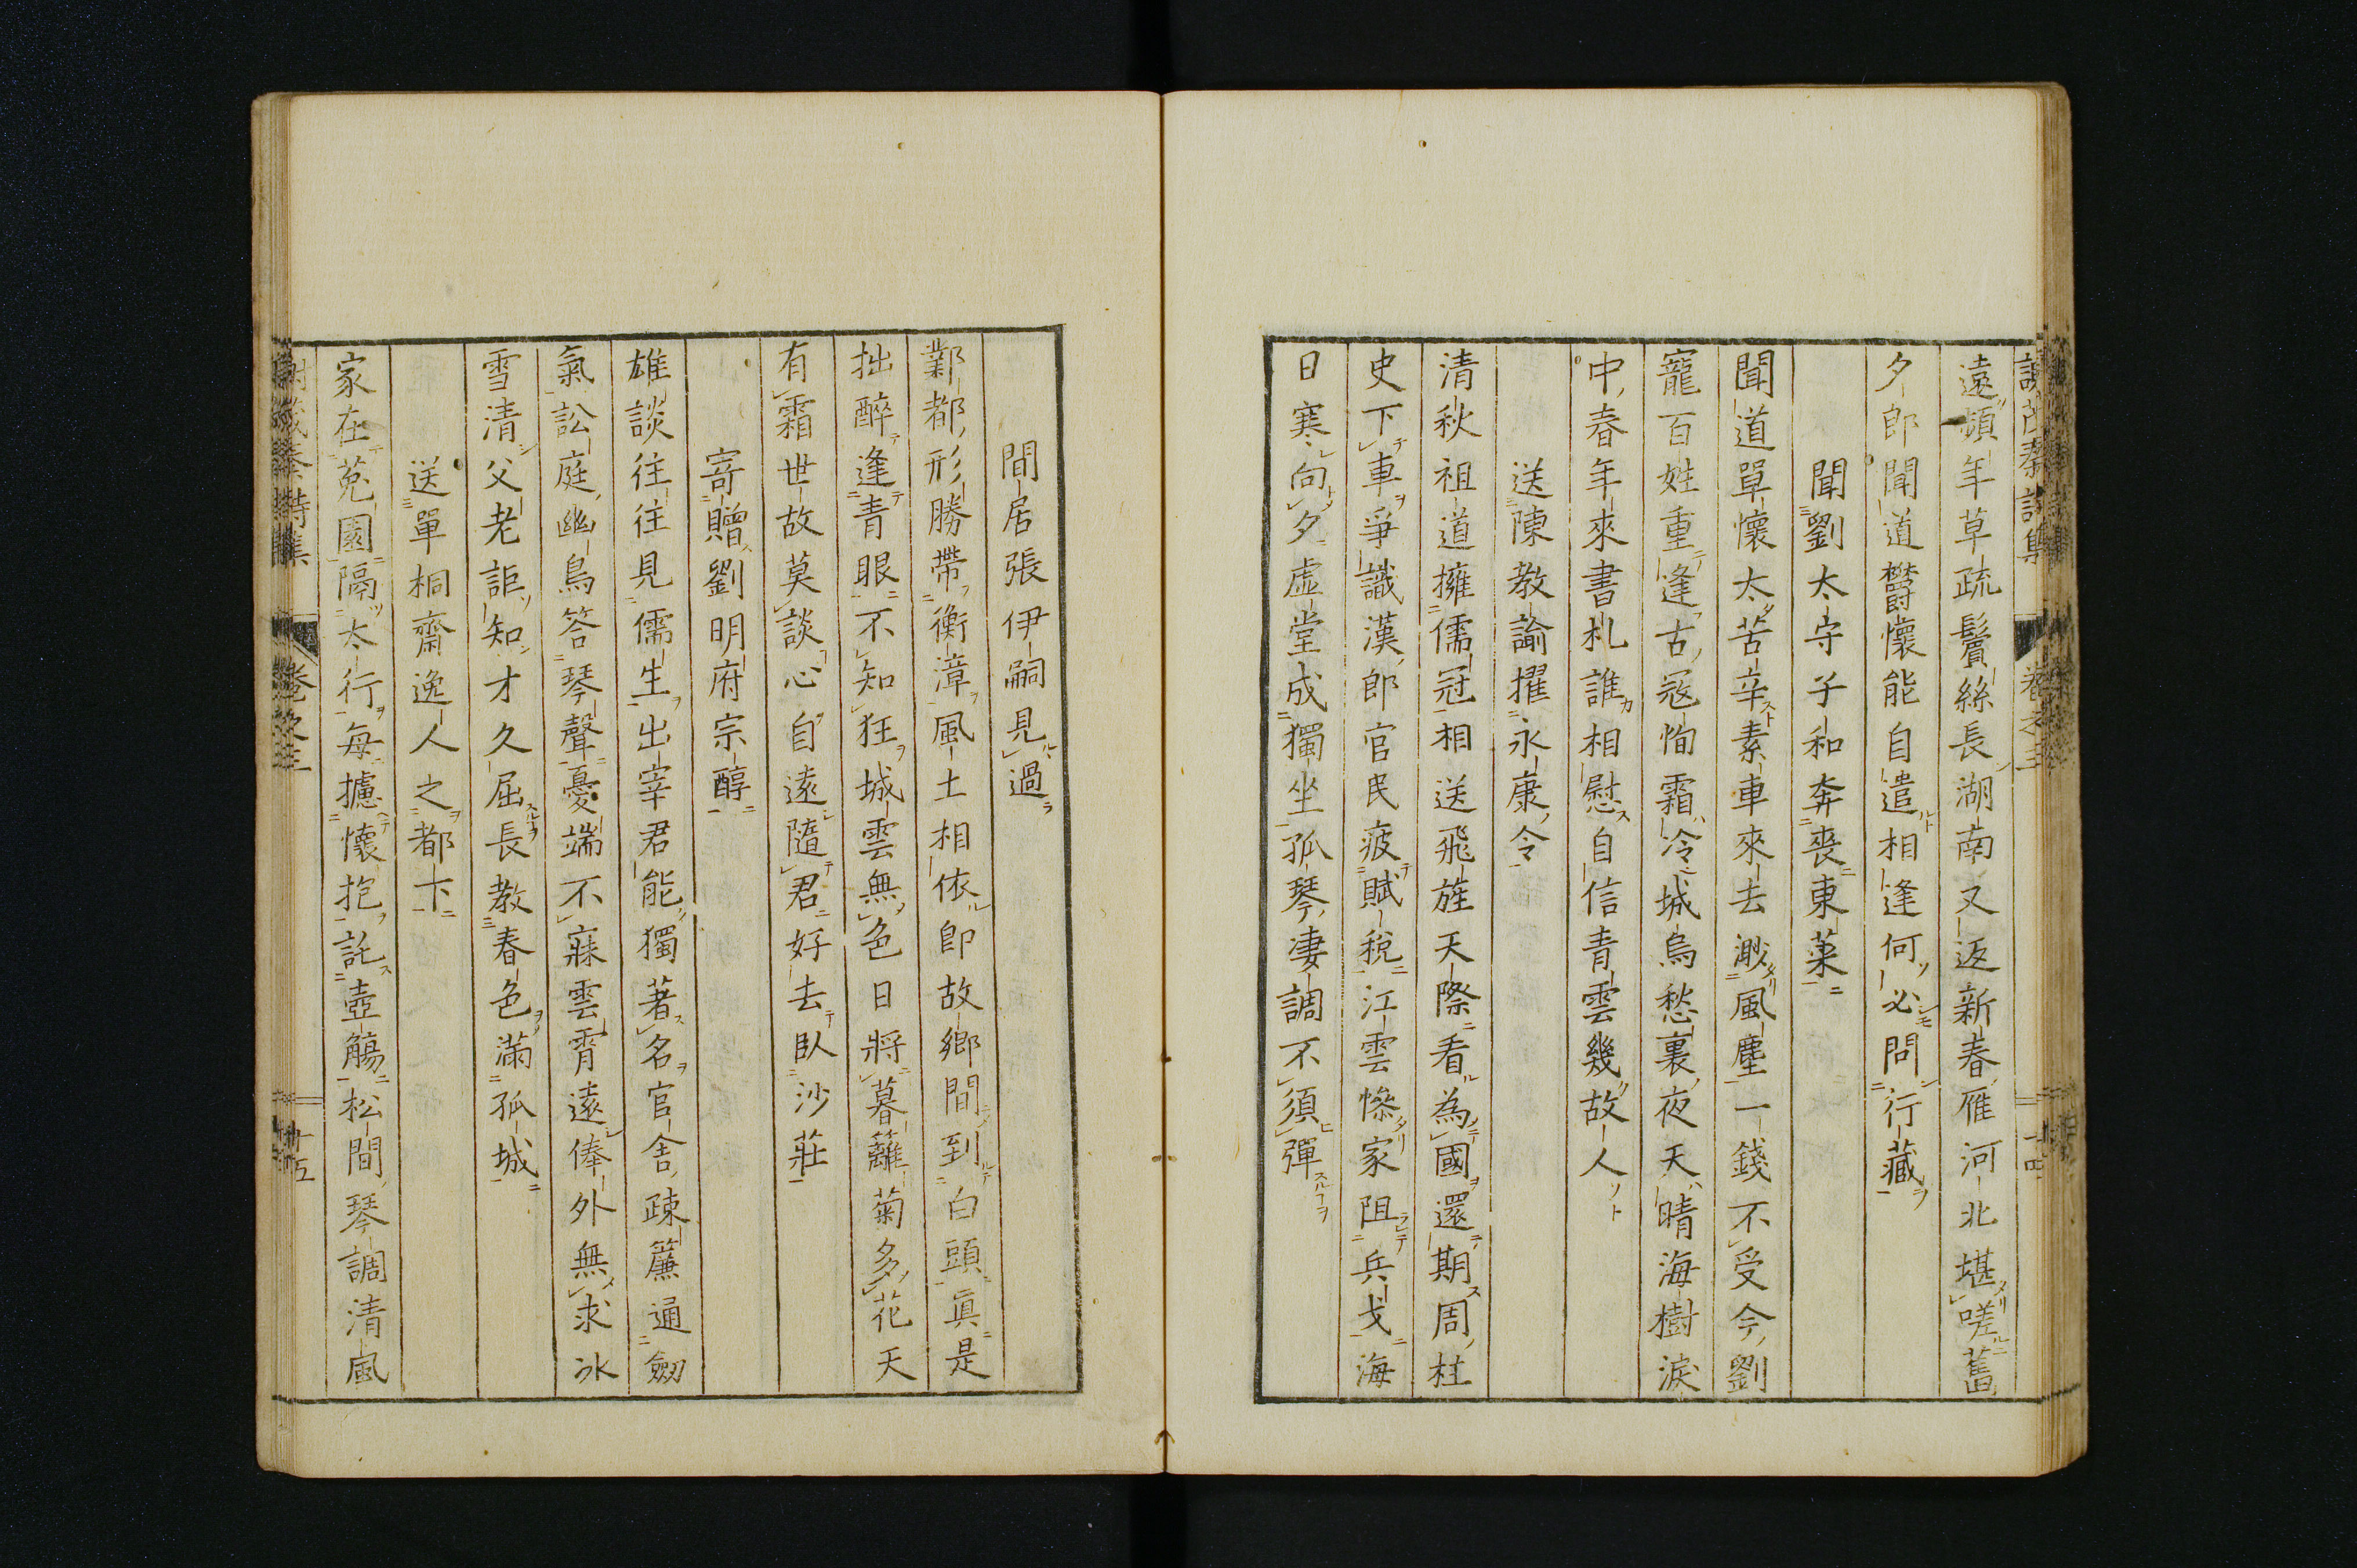 遠頓年草疏鬢絲長湖南又返新春雁河北堪嗟舊
夕郎聞道鬱懷能自遣相逢何必問行藏
聞劉太守子和奔喪東萊
聞道單懷太苦辛素車來去漱風塵一錢不受今劉
寵百姓重逢古寇恂霜冷城烏愁裏夜天晴海樹淚
中春年來書札誰相慰自信青雲幾故人
送陳教諭擢永康令
清秋祖道擁儒冠相送飛旌天際看為國還期周柱
史下車爭識漢郎官民疲賦稅江雲慘家阻兵戈海
日寒向夕虛堂成獨坐孤琴凄調不須彈
間居張伊嗣見過
鄴都形勝帶衡漳風土相依即故鄉間到白頭真是
拙醉逢青眼不知狂城雲無色日將暮籬菊多花天
有霜世故莫談心自遠隨君好去臥沙莊
寄贈劉明府宗醇
雄談往往見儒生出宰君能獨著名官舍疎簾通劒
氣訟庭幽鳥答琴聲憂端不寐雲霄遠俸外無求冰
雪清父老詎知才久屈長教春色滿孤城
送單桐齋逸人之都下
家在菟園隔太行每攄懷抱託壺觴松間琴調清風
卷之三
十五